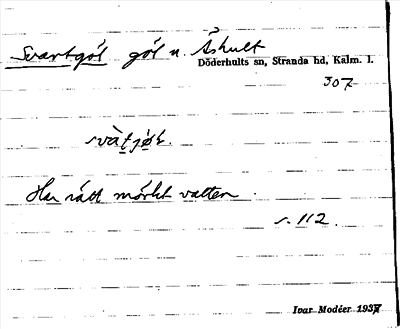 Svartgöl göl n. Åshult
Döderhults sn, Stranda hd, Kalm. l.
307
Har rätt mörkt vatten.
s. 112.
Ivar Modéer 1937